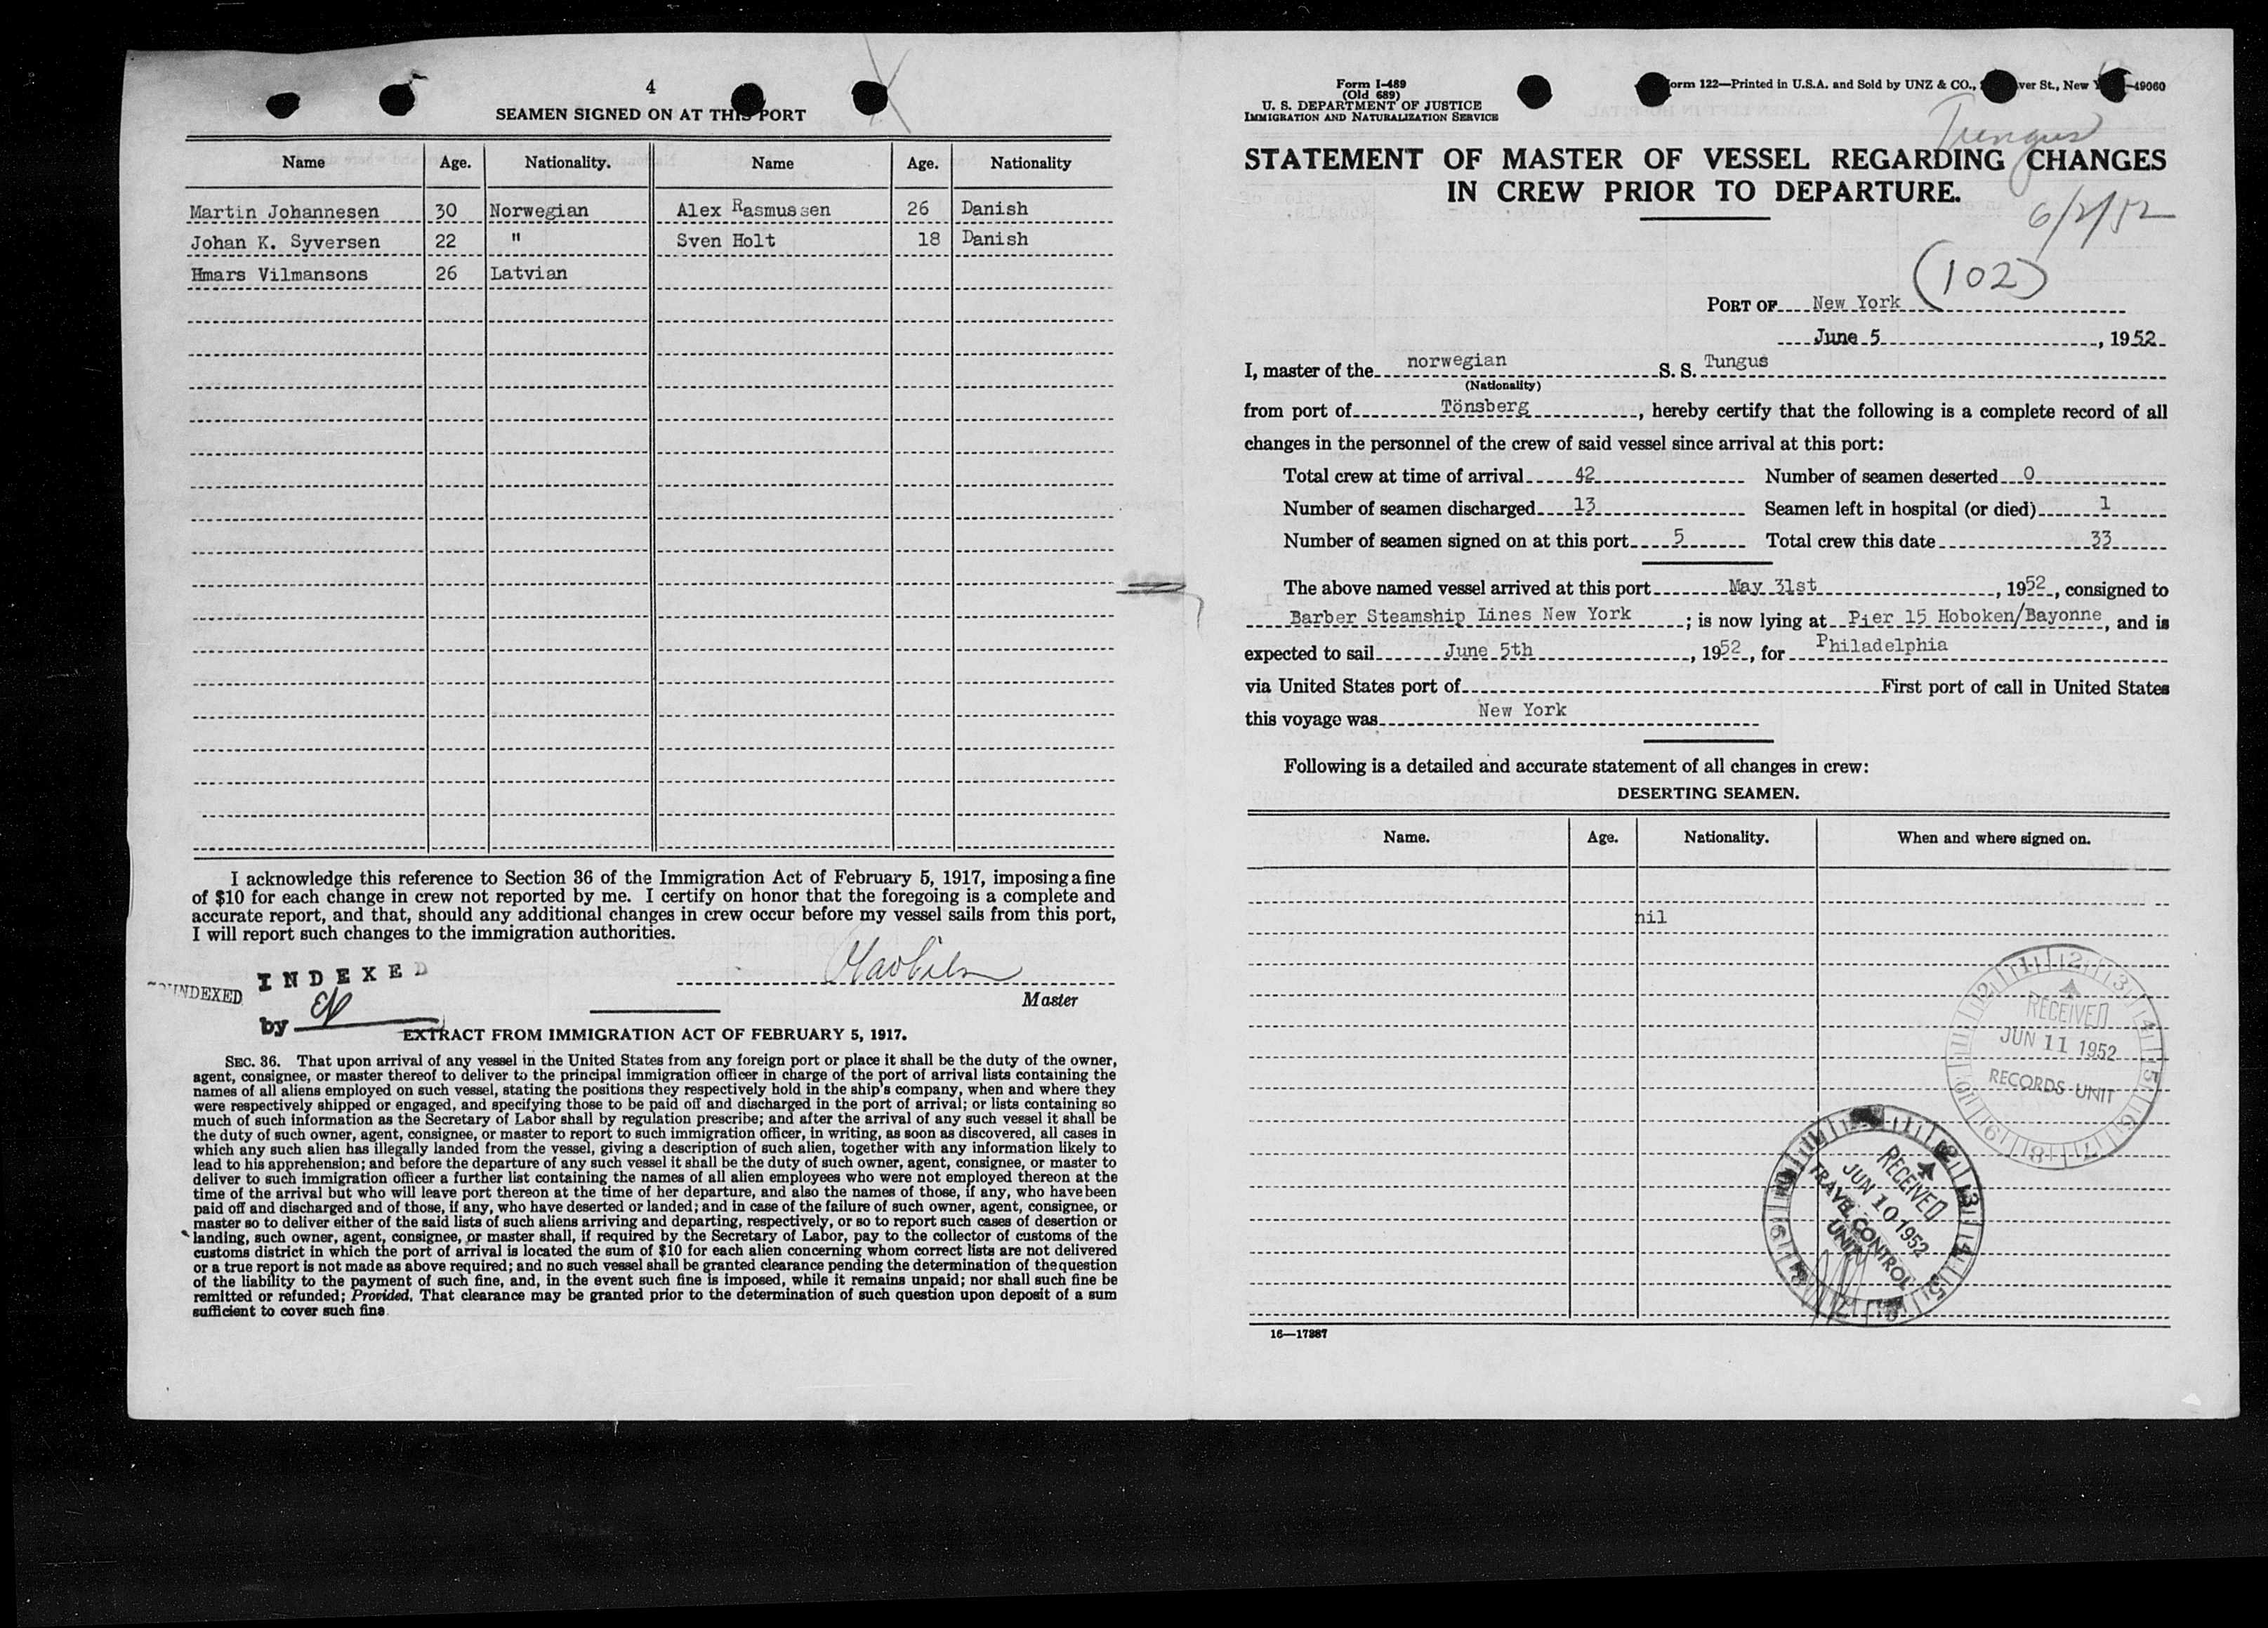 4
SEAMEN SIGNED ON AT THIS PORT
Name Age. Nationality. Name Age. Nationality
Martin Johannesen 30 Norwegian Alex Rasmussen 26 Danish
Johan K. Syversen 22 " Sven Holt 18 Danish
Hmars Vilmansons 26 Latvian
I acknowledge this reference to Section 36 of the Immigration Act of February 5, 1917, imposing a fine
of $10 for each change in crew not reported by me. I certify on honor that the foregoing is a complete and
accurate report, and that, should any additional changes in crew occur before my vessel sails from this port,
I will report such changes to the immigration authorities.
INDEXED
INDEXED
by
Master
EXTRACT FROM IMMIGRATION ACT OF FEBRUARY 5, 1917.
SEC. 36. That upon arrival of any vessel in the United States from any foreign port or place it shall be the duty of the owner,
agent, consignee, or master thereof to deliver to the principal immigration officer in charge of the port of arrival lists containing the
names of all aliens employed on such vessel, stating the positions they respectively hold in the ship's company, when and where they
were respectively shipped or engaged, and specifying those to be paid off and discharged in the port of arrival; or lists containing so
much of such information as the Secretary of Labor shall by regulation prescribe; and after the arrival of any such vessel it shall be
the duty of such owner, agent, consignee, or master to report to such immigration officer, in writing, as soon as discovered, all cases in
which any such alien has illegally landed from the vessel, giving a description of such alien, together with any information likely to
lead to his apprehension; and before the departure of any such vessel it shall be the duty of such owner, agent, consignee, or master to
deliver to such immigration officer a further list containing the names of all alien employees who were not employed thereon at the
time of the arrival but who will leave port thereon at the time of her departure, and also the names of those, if any, who have been
paid off and discharged and of those, if any, who have deserted or landed; and in case of the failure of such owner, agent, consignee, or
master so to deliver either of the said lists of such aliens arriving and departing, respectively, or so to report such cases of desertion or
landing, such owner, agent, consignee, or master shall, if required by the Secretary of Labor, pay to the collector of customs of the
customs district in which the port of arrival is located the sum of $10 for each alien concerning whom correct lists are not delivered
or a true report is not made as above required; and no such vessel shall be granted clearance pending the determination of the question
of the liability to the payment of such fine, and, in the event such fine is imposed, while it remains unpaid; nor shall such fine be
remitted or refunded; Provided, That clearance may be granted prior to the determination of such question upon deposit of a sum
sufficient to cover such fine.
Form I-489
(Old 689)
U. S. DEPARTMENT OF JUSTICE
IMMIGRATION AND NATURALIZATION SERVICE
orm 122—Printed in U.S.A. and Sold by UNZ & CO., ver St., New -49060
Tungus
STATEMENT OF MASTER OF VESSEL REGARDING CHANGES
IN CREW PRIOR TO DEPARTURE.
6/2/52
(102)
PORT OF New York
June 5, 1952
I, master of the norwegian S. S. Tungus
(Nationality)
from port of Tönsberg, hereby certify that the following is a complete record of all
changes in the personnel of the crew of said vessel since arrival at this port:
Total crew at time of arrival 42 Number of seamen deserted 0
Number of seamen discharged 13 Seamen left in hospital (or died) 1
Number of seamen signed on at this port 5 Total crew this date 33
The above named vessel arrived at this port May 31st, 1952, consigned to
Barber Steamship Lines New York; is now lying at Pier 15 Hoboken/Bayonne, and is
expected to sail June 5th, 1952, for Philadelphia
via United States port of First port of call in United States
this voyage was New York
Following is a detailed and accurate statement of all changes in crew:
DESERTING SEAMEN.
Name. Age. Nationality. When and where signed on.
nil
RECEIVED
JUN 11 1952
RECORDS UNIT
RECEIVED
JUN 10 1952
TRAVEL CONTROL
UNIT
16—17287